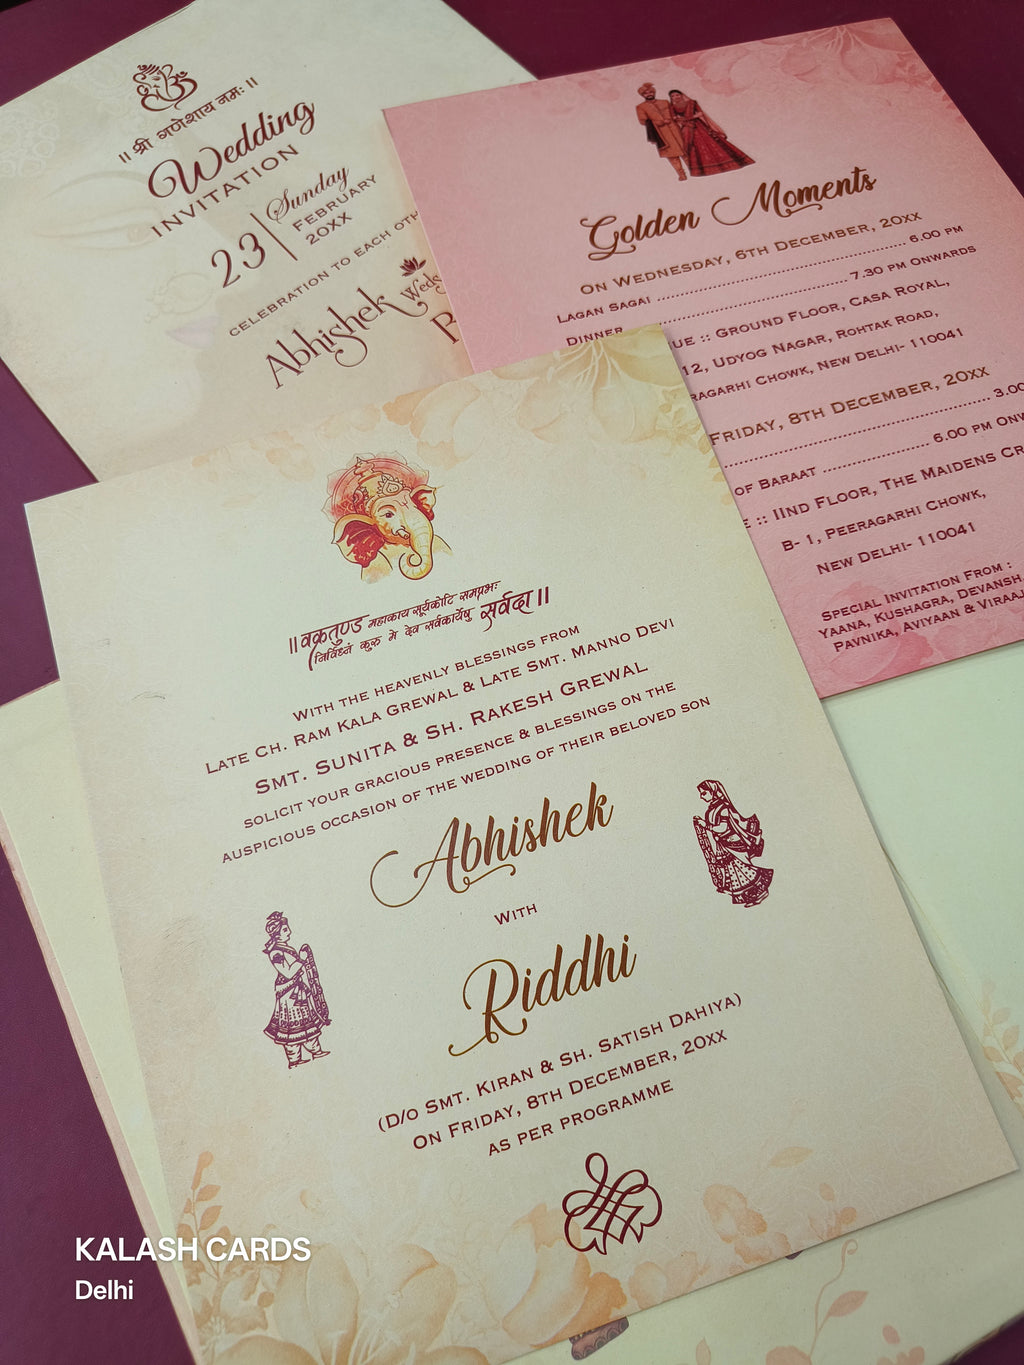 ॥ श्री गणेशाय नमः ॥
Wedding
INVITATION
23
Sunday
FEBRUARY
20XX
CELEBRATION TO EACH OTH
Abhishek Weds
Golden Moments
ON WEDNESDAY, 6TH DECEMBER, 20XX
LAGAN SAGAI ........................................ 6.00 PM
DINNER ........................................ 7.30 PM ONWARDS
UE :: GROUND FLOOR, CASA ROYAL,
12, UDYOG NAGAR, ROHTAK ROAD,
RAGARHI CHOWK, NEW DELHI- 110041
FRIDAY, 8TH DECEMBER, 20XX
........................................ 3.00
OF BARAAT .................... 6.00 PM ONW
E :: IIND FLOOR, THE MAIDENS CR
B- 1, PEERAGARHI CHOWK,
NEW DELHI- 110041
SPECIAL INVITATION FROM :
YAANA, KUSHAGRA, DEVANSH,
PAVNIKA, AVIYAAN & VIRAAJ
॥ वक्रतुण्ड महाकाय सूर्यकोटि समप्रभः
निर्विघ्नं कुरु मे देव सर्वकार्येषु सर्वदा ॥
WITH THE HEAVENLY BLESSINGS FROM
LATE CH. RAM KALA GREWAL & LATE SMT. MANNO DEVI
SMT. SUNITA & SH. RAKESH GREWAL
SOLICIT YOUR GRACIOUS PRESENCE & BLESSINGS ON THE
AUSPICIOUS OCCASION OF THE WEDDING OF THEIR BELOVED SON
Abhishek
WITH
Riddhi
(D/O SMT. KIRAN & SH. SATISH DAHIYA)
ON FRIDAY, 8TH DECEMBER, 20XX
AS PER PROGRAMME
KALASH CARDS
Delhi